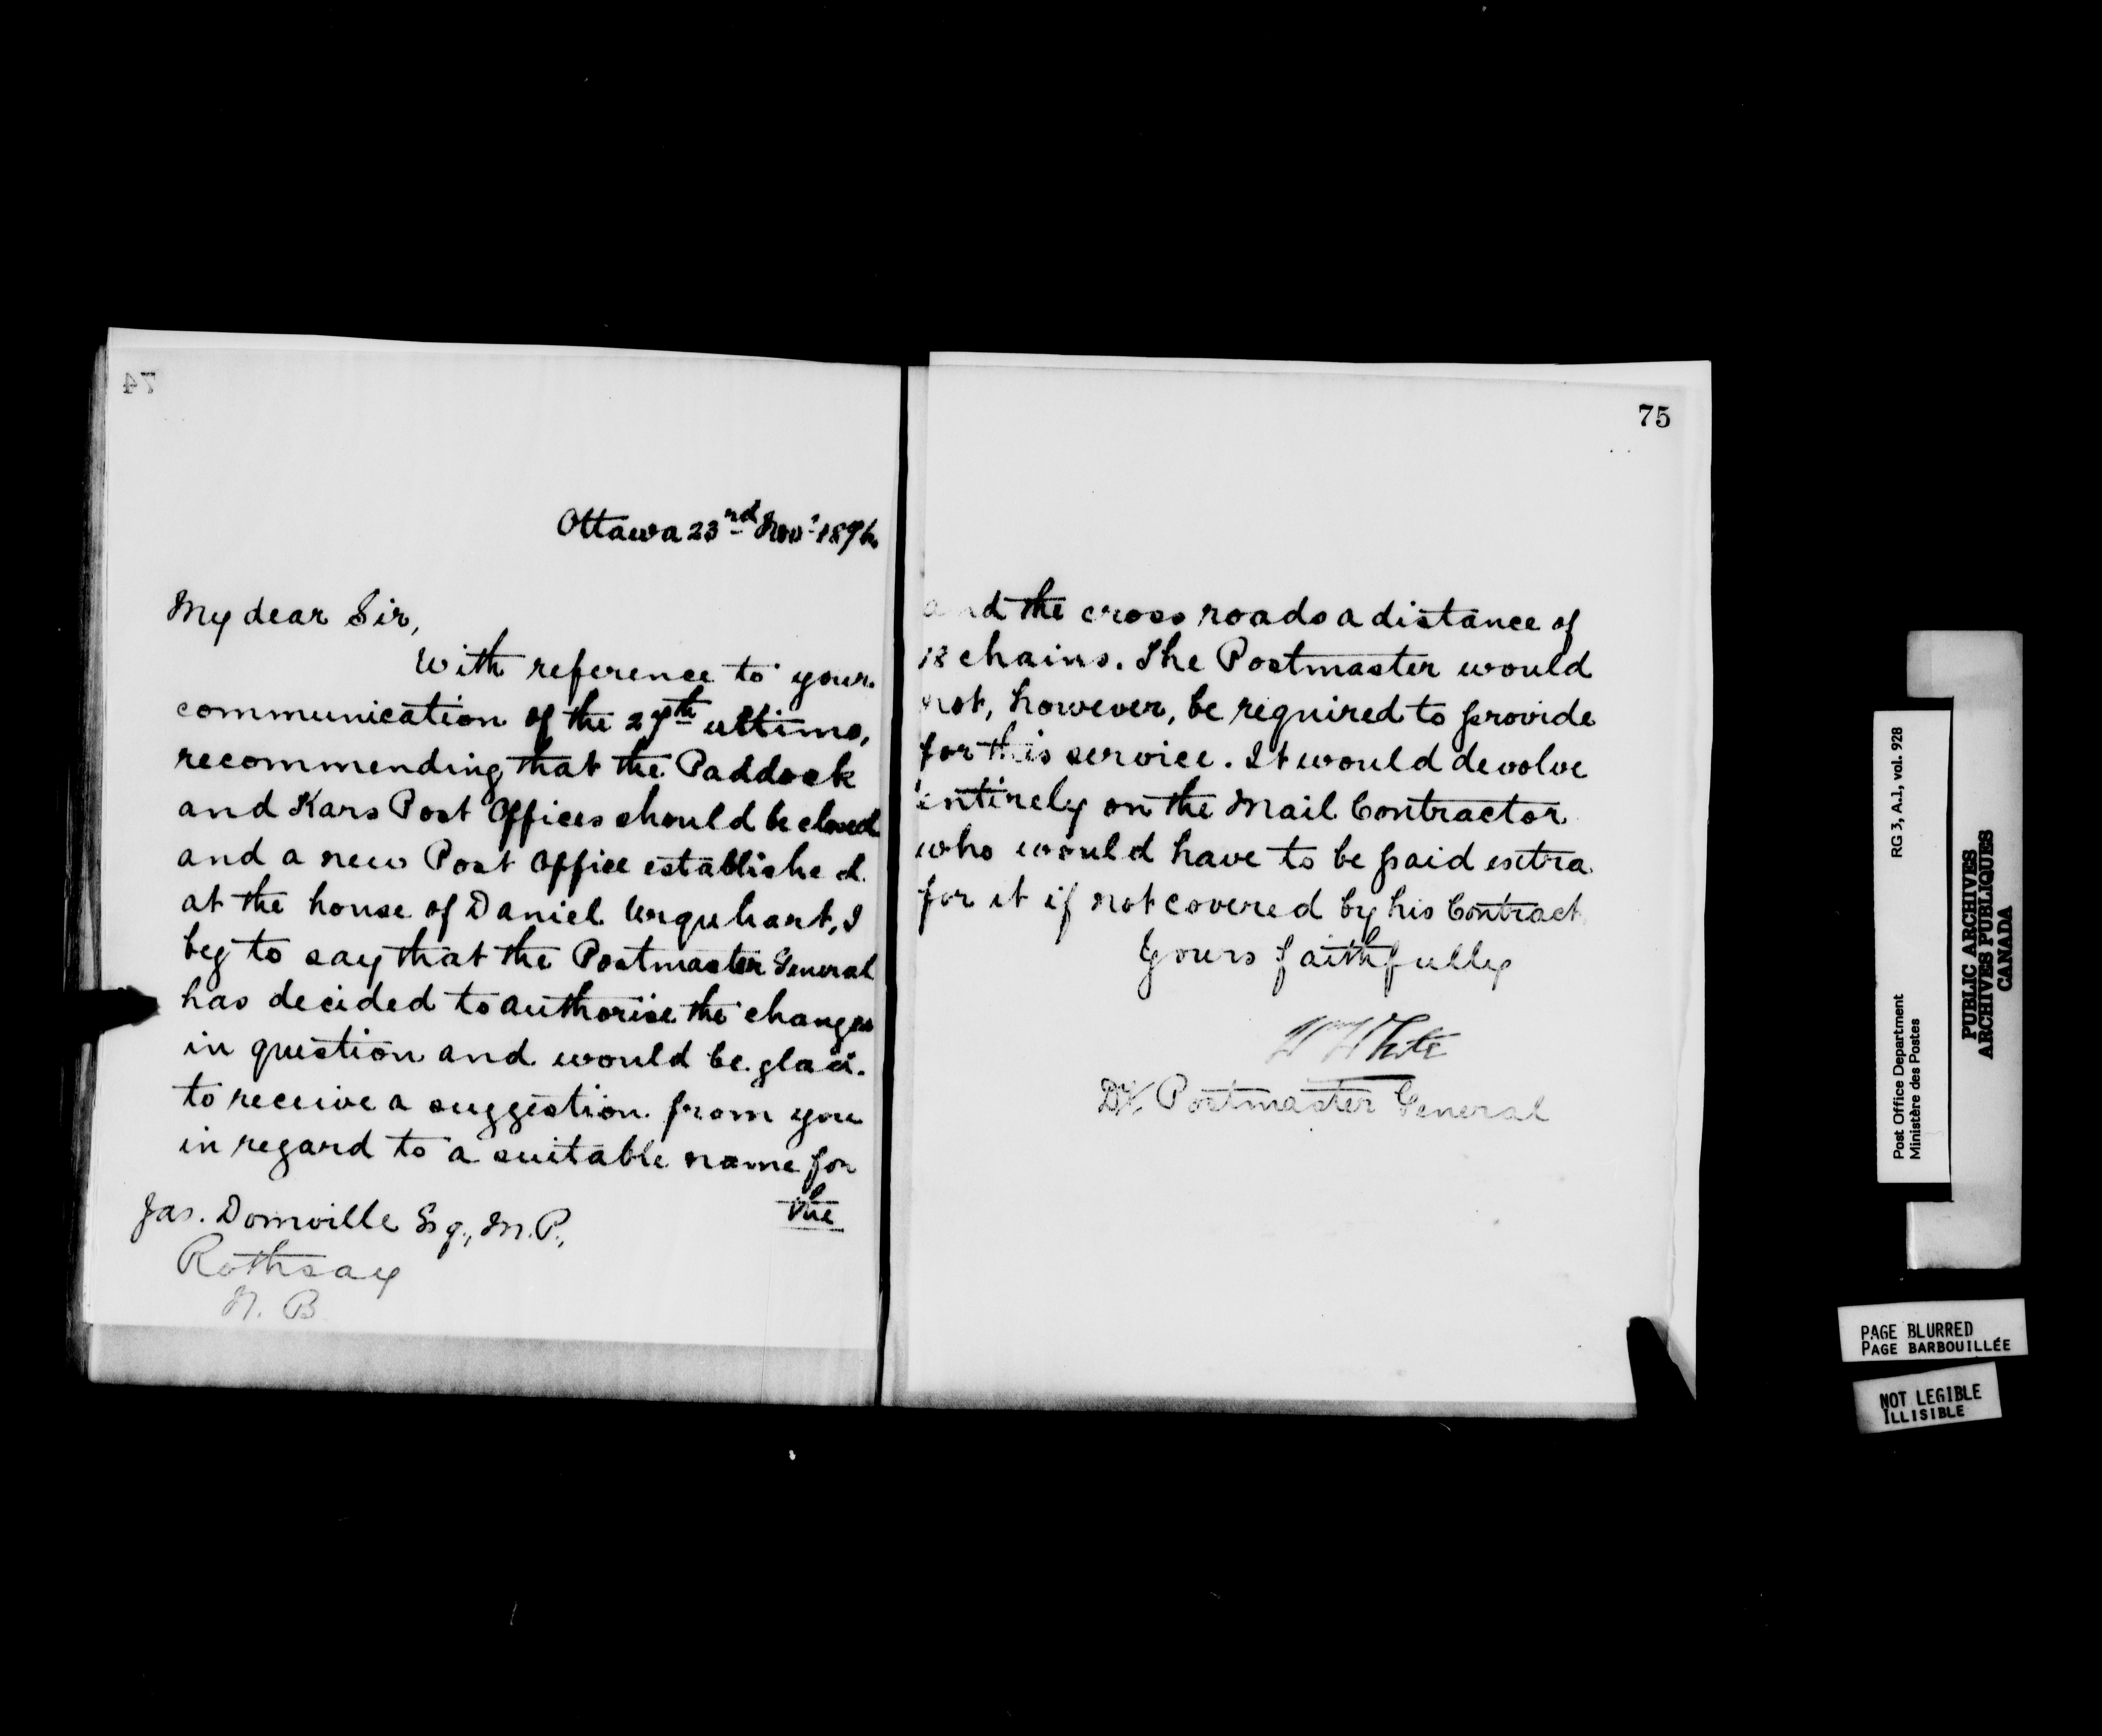 74
Ottawa 23rd Novr 1896
My dear Sir,
With reference to your
communication of the 27th ultimo,
recommending that the Paddock
and Kars Post Offices should be closed
and a new Post Office established
at the house of Daniel Urquhart, I
beg to say that the Postmaster General
has decided to authorise the changes
in question and would be glad
to receive a suggestion from you
in regard to a suitable name for
the
Jas. Domville Esq., M.P.,
Rothsay
N. B
75
and the cross roads a distance of
18 chains. The Postmaster would
not, however, be required to provide
for this service. It would devolve
entirely on the Mail Contractor
who would have to be paid extra
for it if not covered by his Contract
Yours faithfully
Wm White
Dy. Postmaster General
RG 3, A.1, vol. 928
Post Office Department
Ministère des Postes
PUBLIC ARCHIVES
ARCHIVES PUBLIQUES
CANADA
PAGE BLURRED
PAGE BARBOUILLÉE
NOT LEGIBLE
ILLISIBLE